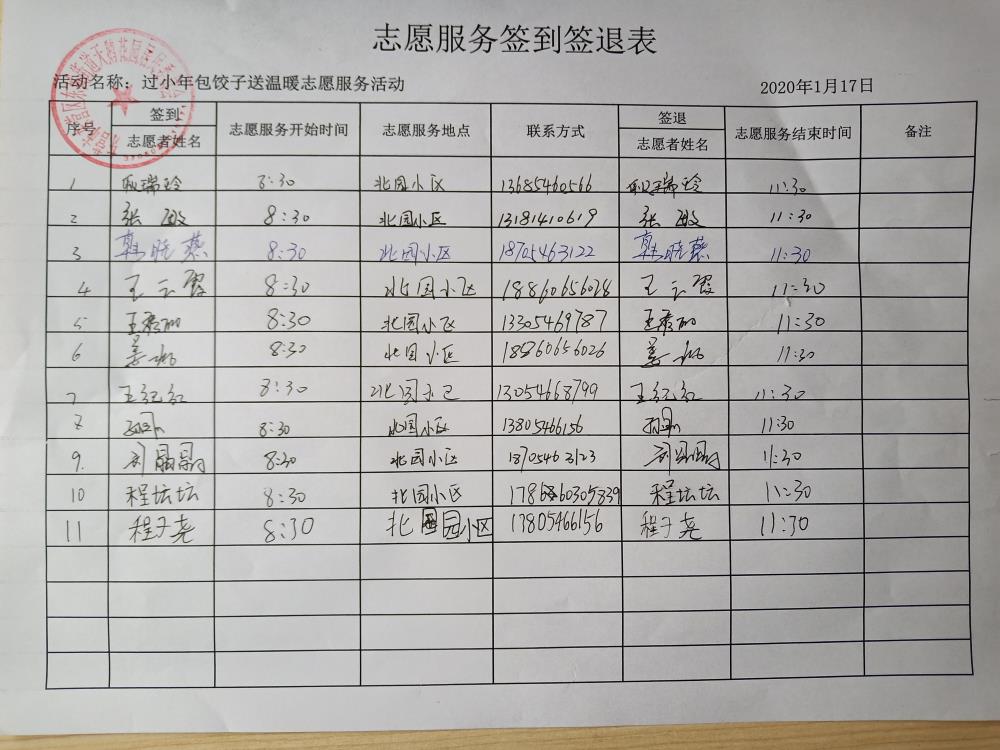 志愿服务签到签退表
活动名称：过小年包饺子送温暖志愿服务活动 2020年1月17日
序号 签到 志愿者姓名 志愿服务开始时间 志愿服务地点 联系方式 签退 志愿者姓名 志愿服务结束时间 备注
1 耿瑞玲 8:30 北园小区 13685460566 耿瑞玲 11:30
2 张敏 8:30 北园小区 13181410619 张敏 11:30
3 韩晓燕 8:30 北园小区 18705463122 韩晓燕 11:30
4 王云霞 8:30 北园小区 18860656028 王云霞 11:30
5 8:30 北园小区 13305469787 11:30
6 8:30 北园小区 18560656026 11:30
7 王纪红 8:30 北园小区 13054668799 王纪红 11:30
8 8:30 北园小区 13805466156 11:30
9. 刘晶晶 8:30 北园小区 18705463123 刘晶晶 11:30
10 程坛坛 8:30 北园小区 程坛坛 11:30
11 程子尧 8:30 北园小区 13805466156 程子尧 11:30